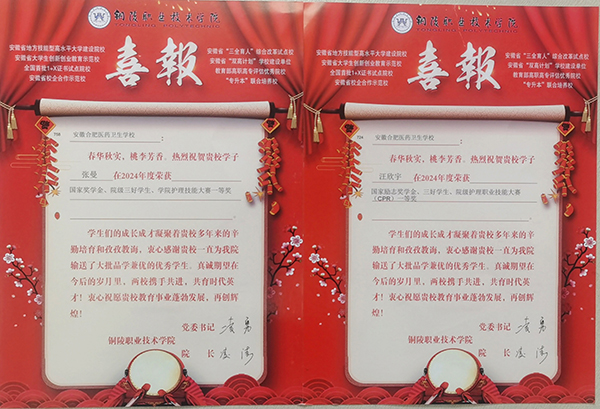 铜陵职业技术学院
喜報
安徽省地方技能型高水平大学建设院校
安徽省大学生创新创业教育示范校
全国首批1+X证书试点院校
安徽省校企合作示范校
安徽省“三全育人”综合改革试点校
安徽省“双高计划”学校建设单位
教育部高职高专评估优秀院校
“专升本”联合培养校
安徽合肥医药卫生学校
：
春华秋实，桃李芳香。热烈祝贺贵校学子
张曼 在2024年度荣获
国家奖学金、院级三好学生、学院护理技能大赛一等奖
学生们的成长成才凝聚着贵校多年来的辛
勤培育和孜孜教诲，衷心感谢贵校一直为我院
输送了大批品学兼优的优秀学生。真诚期望在
今后的岁月里，两校携手共进，共育时代英
才！衷心祝愿贵校教育事业蓬勃发展，再创辉
煌！
党委书记
铜陵职业技术学院
院 长
铜陵职业技术学院
喜報
安徽省地方技能型高水平大学建设院校
安徽省大学生创新创业教育示范校
全国首批1+X证书试点院校
安徽省校企合作示范校
安徽省“三全育人”综合改革试点校
安徽省“双高计划”学校建设单位
教育部高职高专评估优秀院校
“专升本”联合培养校
安徽合肥医药卫生学校
：
春华秋实，桃李芳香。热烈祝贺贵校学子
汪欣宇 在2024年度荣获
国家励志奖学金、三好学生、院级护理职业技能大赛
（CPR）一等奖
学生们的成长成才凝聚着贵校多年来的辛
勤培育和孜孜教诲，衷心感谢贵校一直为我院
输送了大批品学兼优的优秀学生。真诚期望在
今后的岁月里，两校携手共进，共育时代英
才！衷心祝愿贵校教育事业蓬勃发展，再创辉
煌！
党委书记
铜陵职业技术学院
院 长